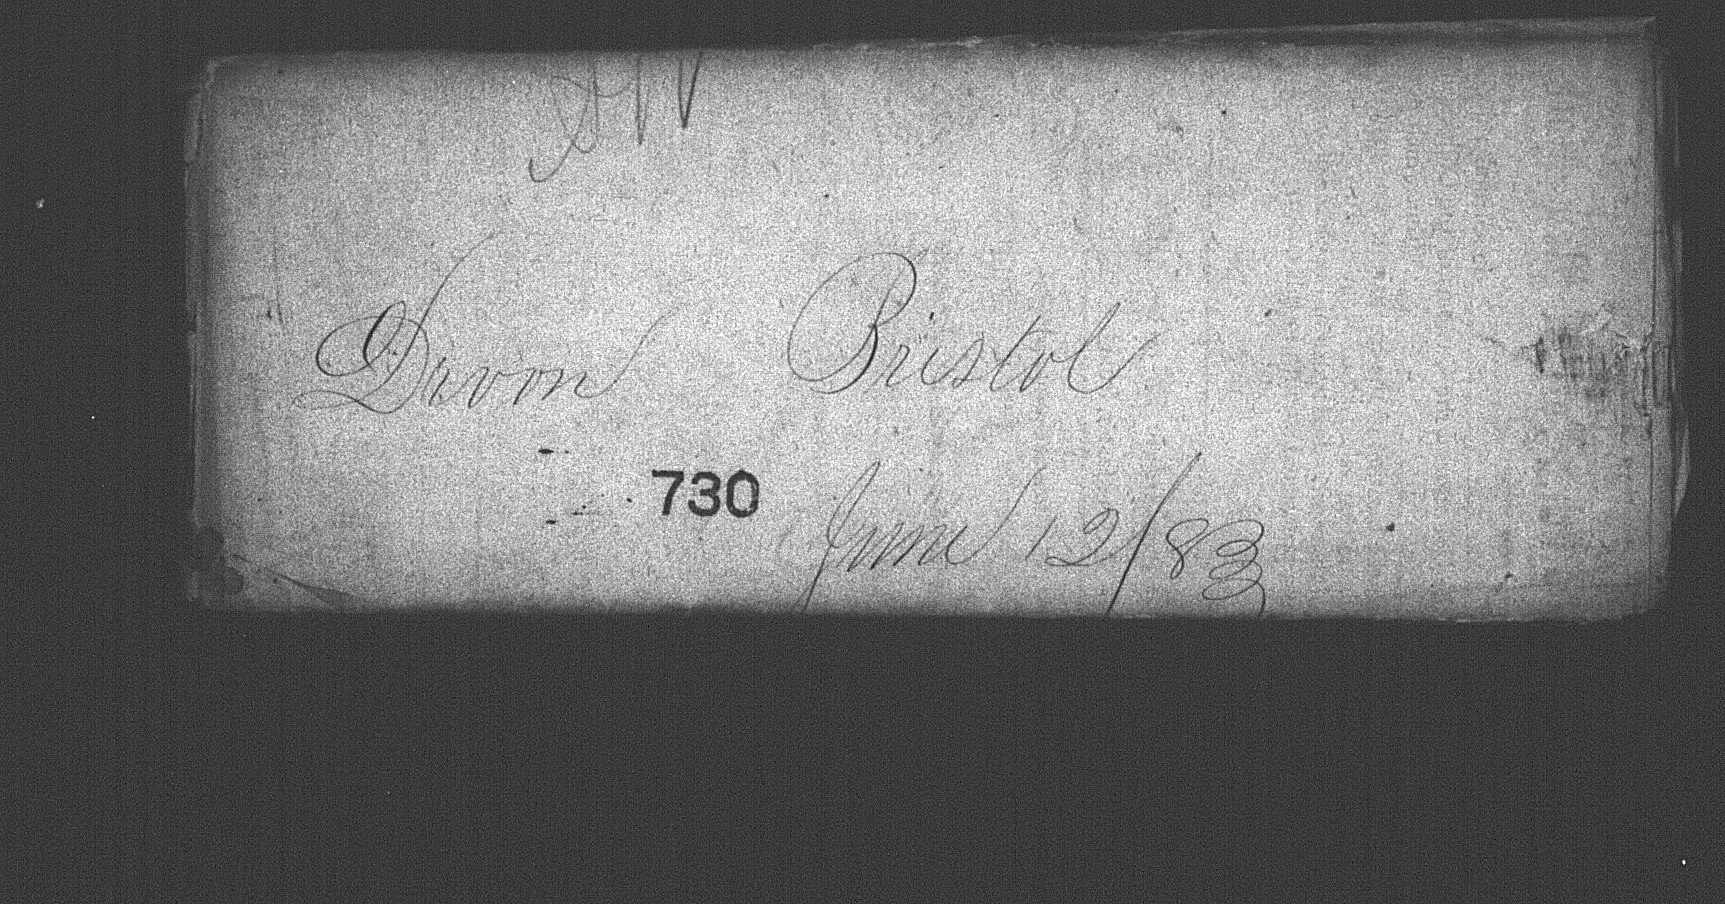 Devon Bristol
730
June 12/83